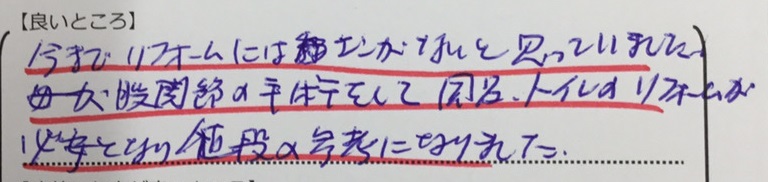 【良いところ】
今までリフォームには縁がないと思っていました。
母が股関節の手術をして風呂、トイレのリフォームが
必要となり値段の参考になりました。